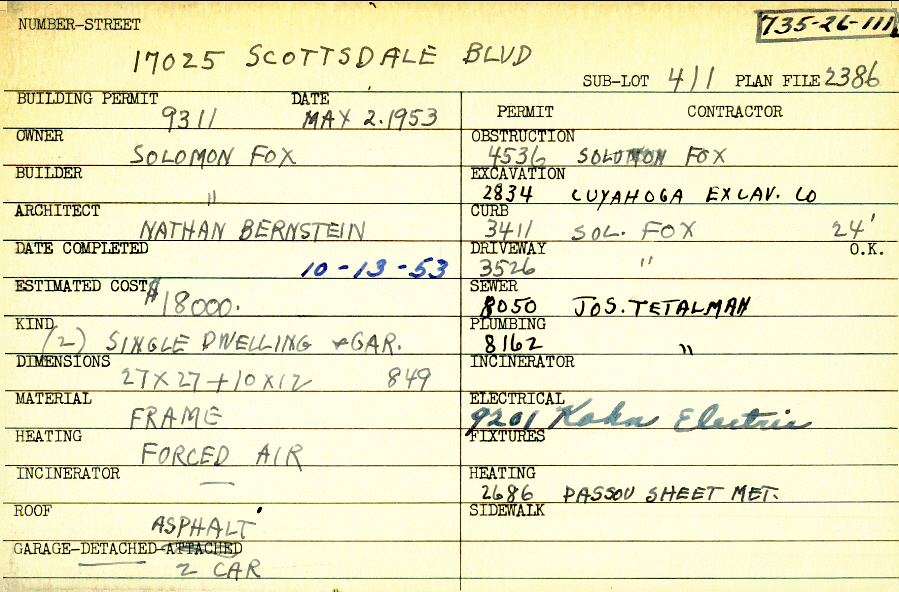 NUMBER-STREET 735-26-111
17025 SCOTTSDALE BLVD
SUB-LOT 411 PLAN FILE 2386
BUILDING PERMIT DATE
9311 MAY 2.1953
OWNER
SOLOMON FOX
BUILDER
"
ARCHITECT
NATHAN BERNSTEIN
DATE COMPLETED
10-13-53
ESTIMATED COST
$18000.
KIND
(2) SINGLE DWELLING & GAR.
DIMENSIONS
27X27+10X12 849
MATERIAL
FRAME
HEATING
FORCED AIR
INCINERATOR
—
ROOF
ASPHALT
GARAGE-DETACHED-ATTACHED
2 CAR
PERMIT CONTRACTOR
OBSTRUCTION
4536 SOLOMON FOX
EXCAVATION
2834 CUYAHOGA EXCAV. CO
CURB
3411 SOL. FOX 24'
DRIVEWAY O.K.
3526 "
SEWER
8050 JOS. TETALMAN
PLUMBING
8162 "
INCINERATOR
ELECTRICAL
9201 Kohn Electric
FIXTURES
HEATING
2686 PASSOV SHEET MET.
SIDEWALK